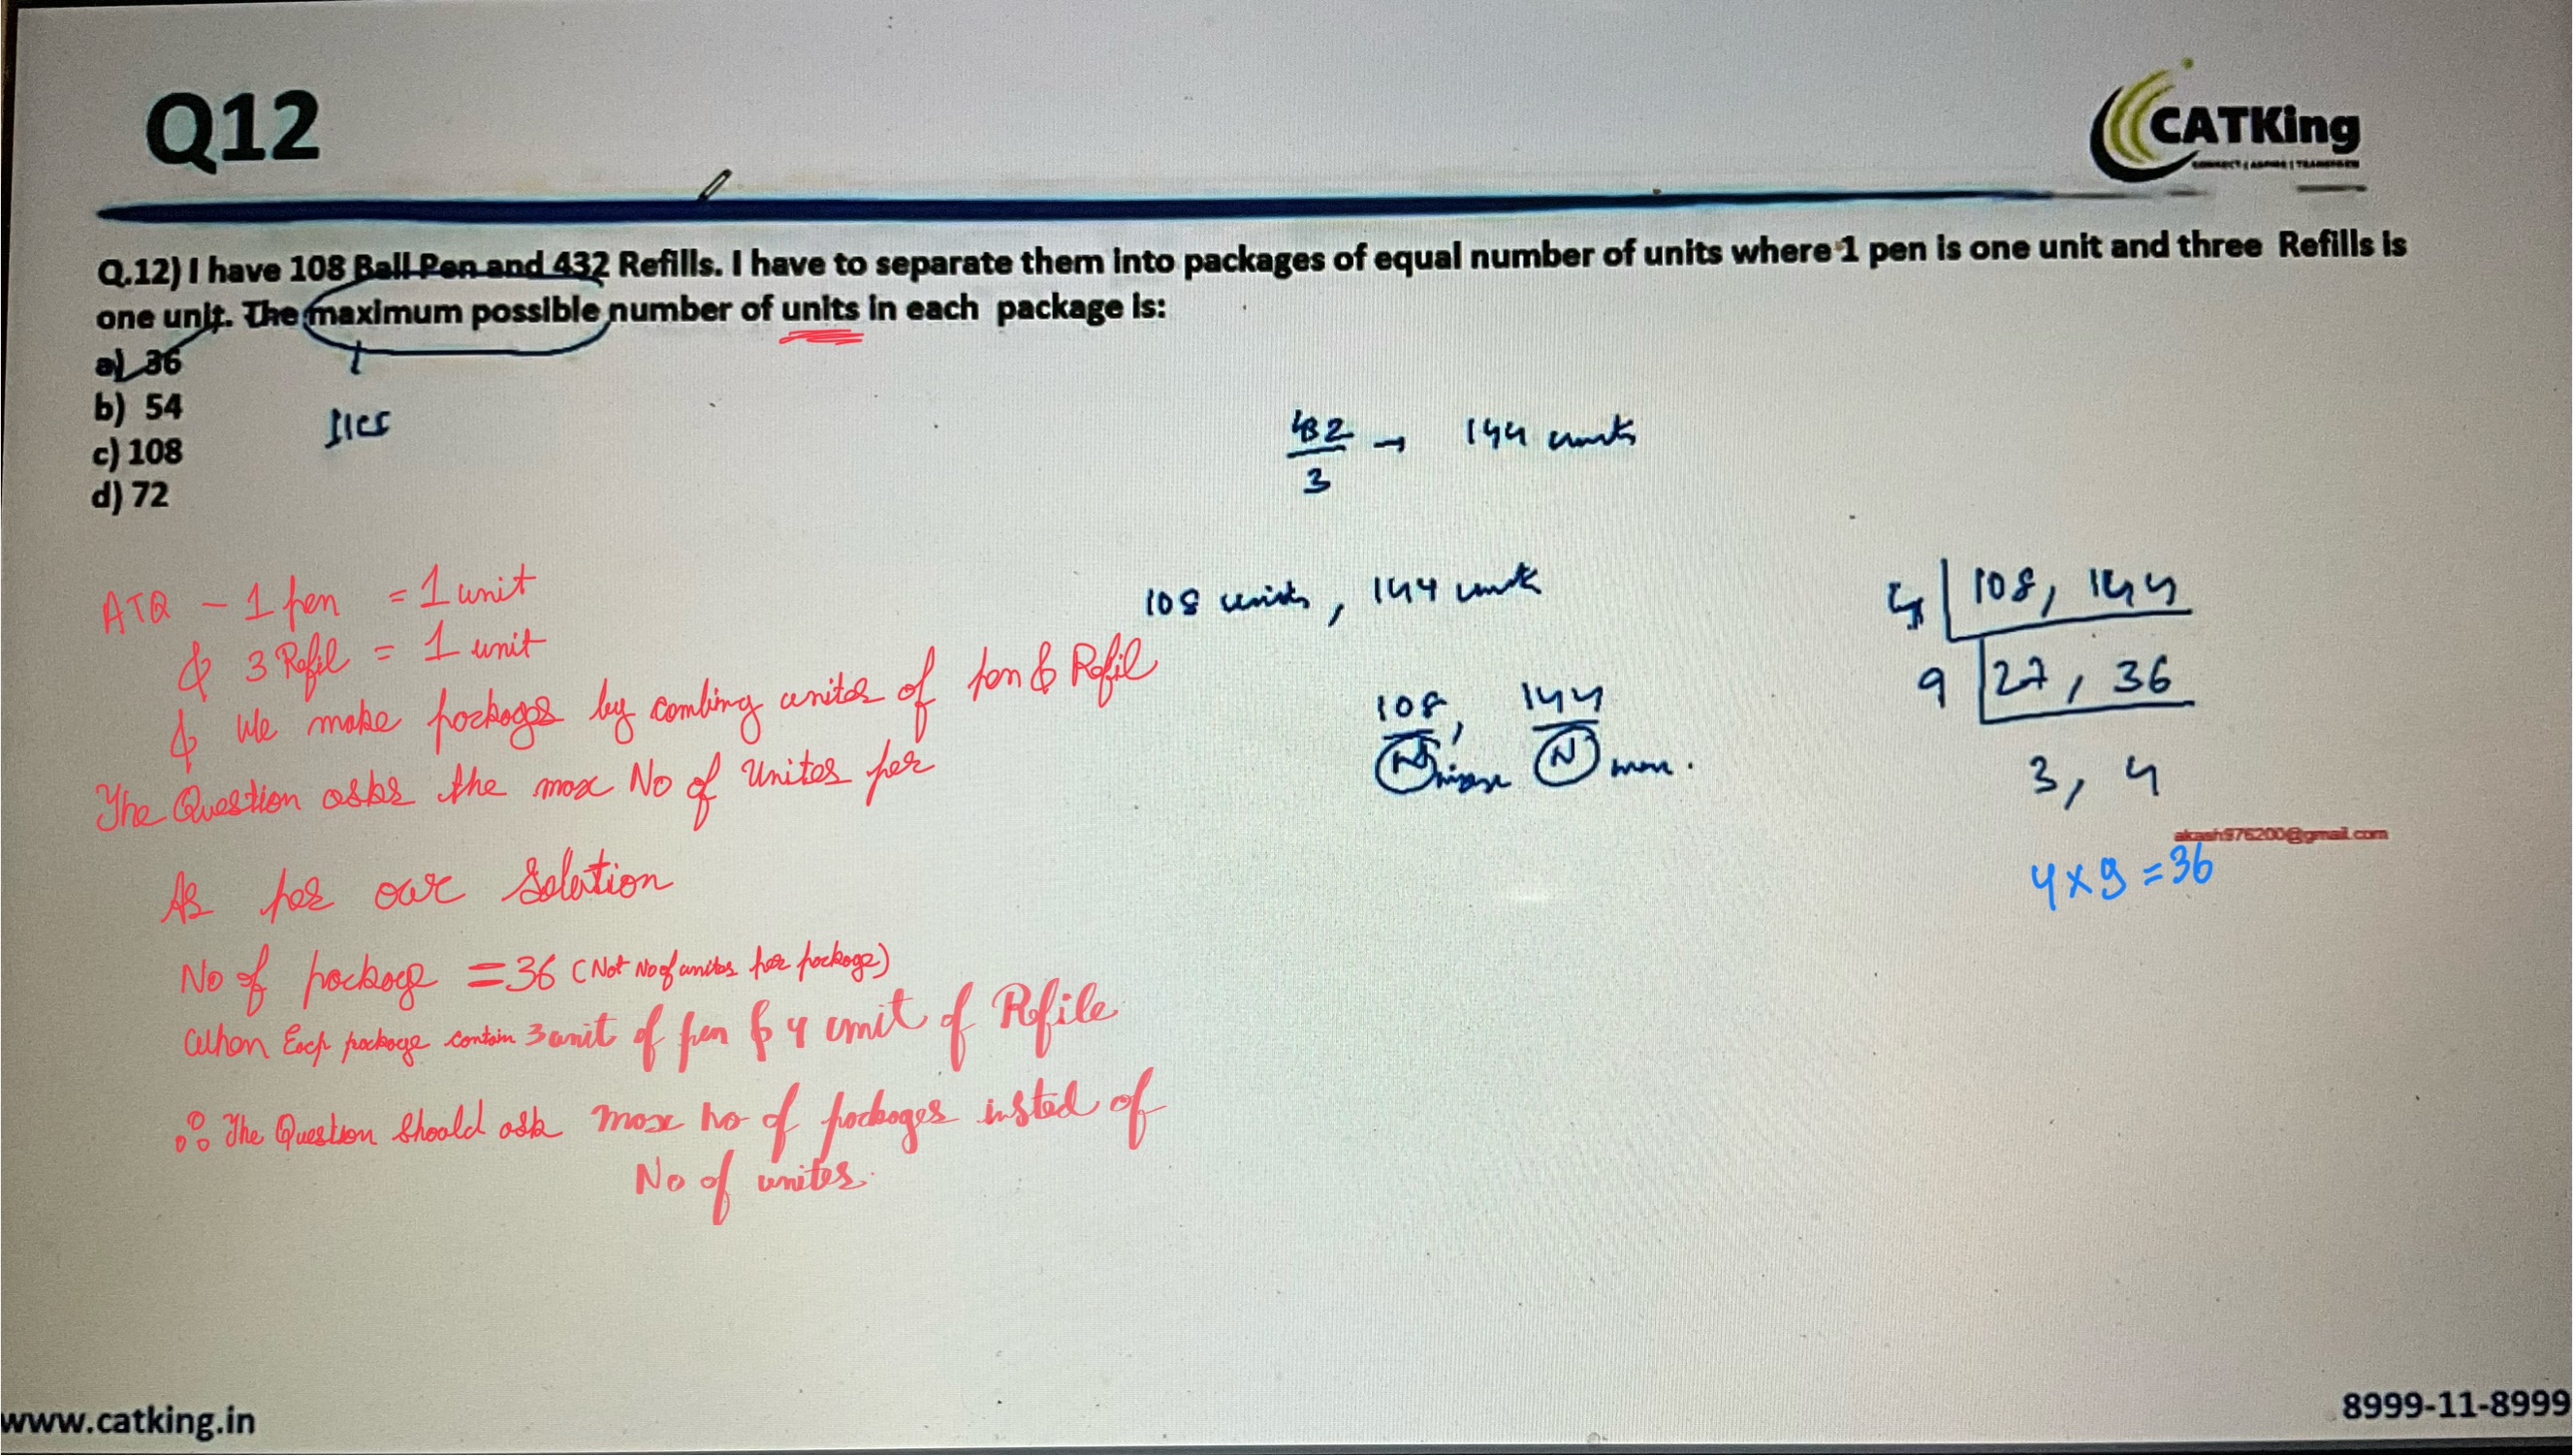 Q12
CATKing
CONNECT | ASPIRE | TRANSFORM
Q.12) I have 108 Ball Pen and 432 Refills. I have to separate them into packages of equal number of units where 1 pen is one unit and three Refills is
one unit. The maximum possible number of units in each package is:
a) 36
b) 54
c) 108
d) 72
432
3
→ 144 units
108 units, 144 units
108, 144
N N
4 | 108, 144
9 | 27, 36
3, 4
akash976200@gmail.com
4 x 9 = 36
ATQ - 1 pen = 1 unit
& 3 Refil = 1 unit
& We make packages by combing unites of pen & Refil
The Question asks the max No of Unites per
As per our Solution
No of package = 36 (Not No of unites per package)
When Each package contain 3 unit of pen & 4 unit of Refile
∴ The Question Should ask max no of packages insted of
No of unites.
www.catking.in
8999-11-8999